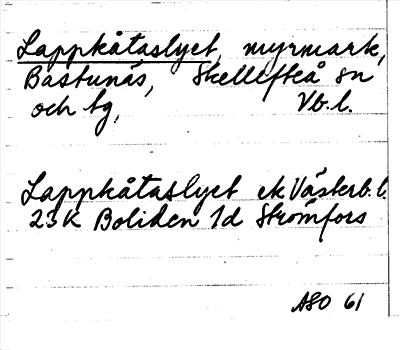 Lappkåtaslyet, myrmark,
Bastunäs, Skellefteå sn
och tg, Vb.l.
Lappkåtaslyet ek Västerb.l.
23K Boliden 1d Strömfors
ASO 61